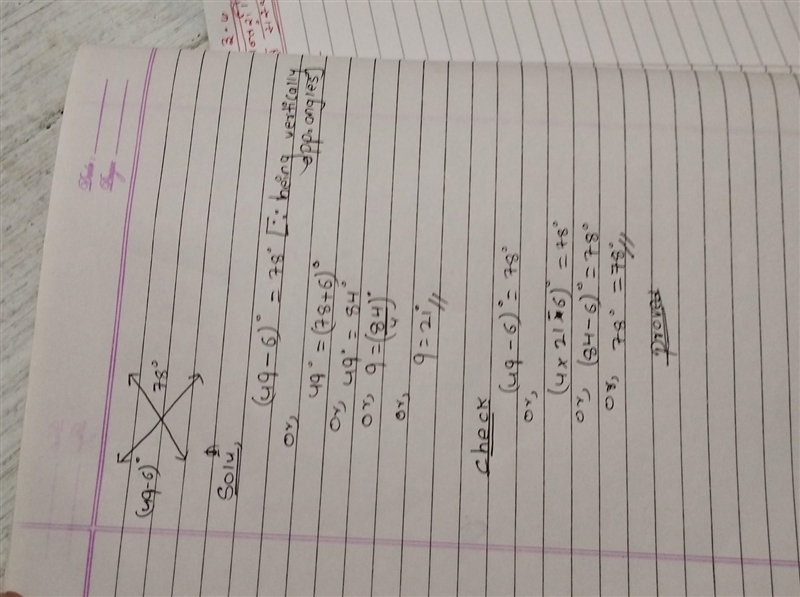 Date :
Page :
(4q-6)° 78°
Solu,
(4q - 6)° = 78° [∵ being vertically
opp. angles]
or,
4q° = (78+6)°
or, 4q° = 84°
or, q = (84/4)°
or,
q = 21°//
Check
(4q - 6)° = 78°
or,
(4 x 21 - 6)° = 78°
or, (84 - 6)° = 78°
or, 78° = 78°//
proved